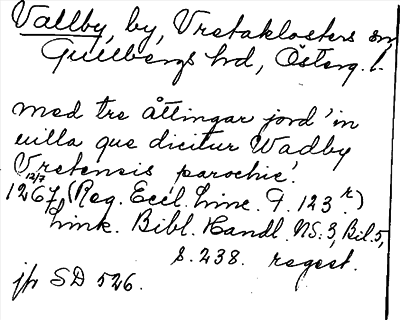 Vallby, by, Vretaklosters sn
Gullbergs hd, Österg. l.
med tre åttingar jord 'in
uilla que dicitur Wadby
Vretensis parochie'.
12/7
1267, (Reg. Eccl. Linc. 9. 123 r.)
Link. Bibl. Handl. NS. 3, Bil. 5,
s. 238. regest.
jfr SD 526.